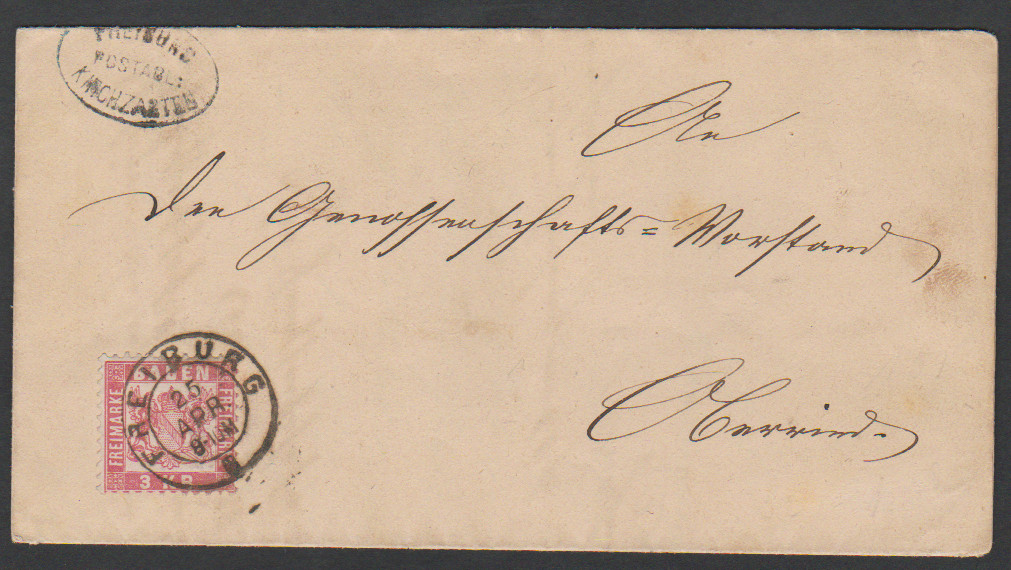 FREIBURG
POSTABL.
KIRCHZARTEN
An
Den Genossenschafts=Vorstand
Oberried.
FREIBURG
25
APR.
BADEN
FREIMARKE
FREIMARKE
3 KR.